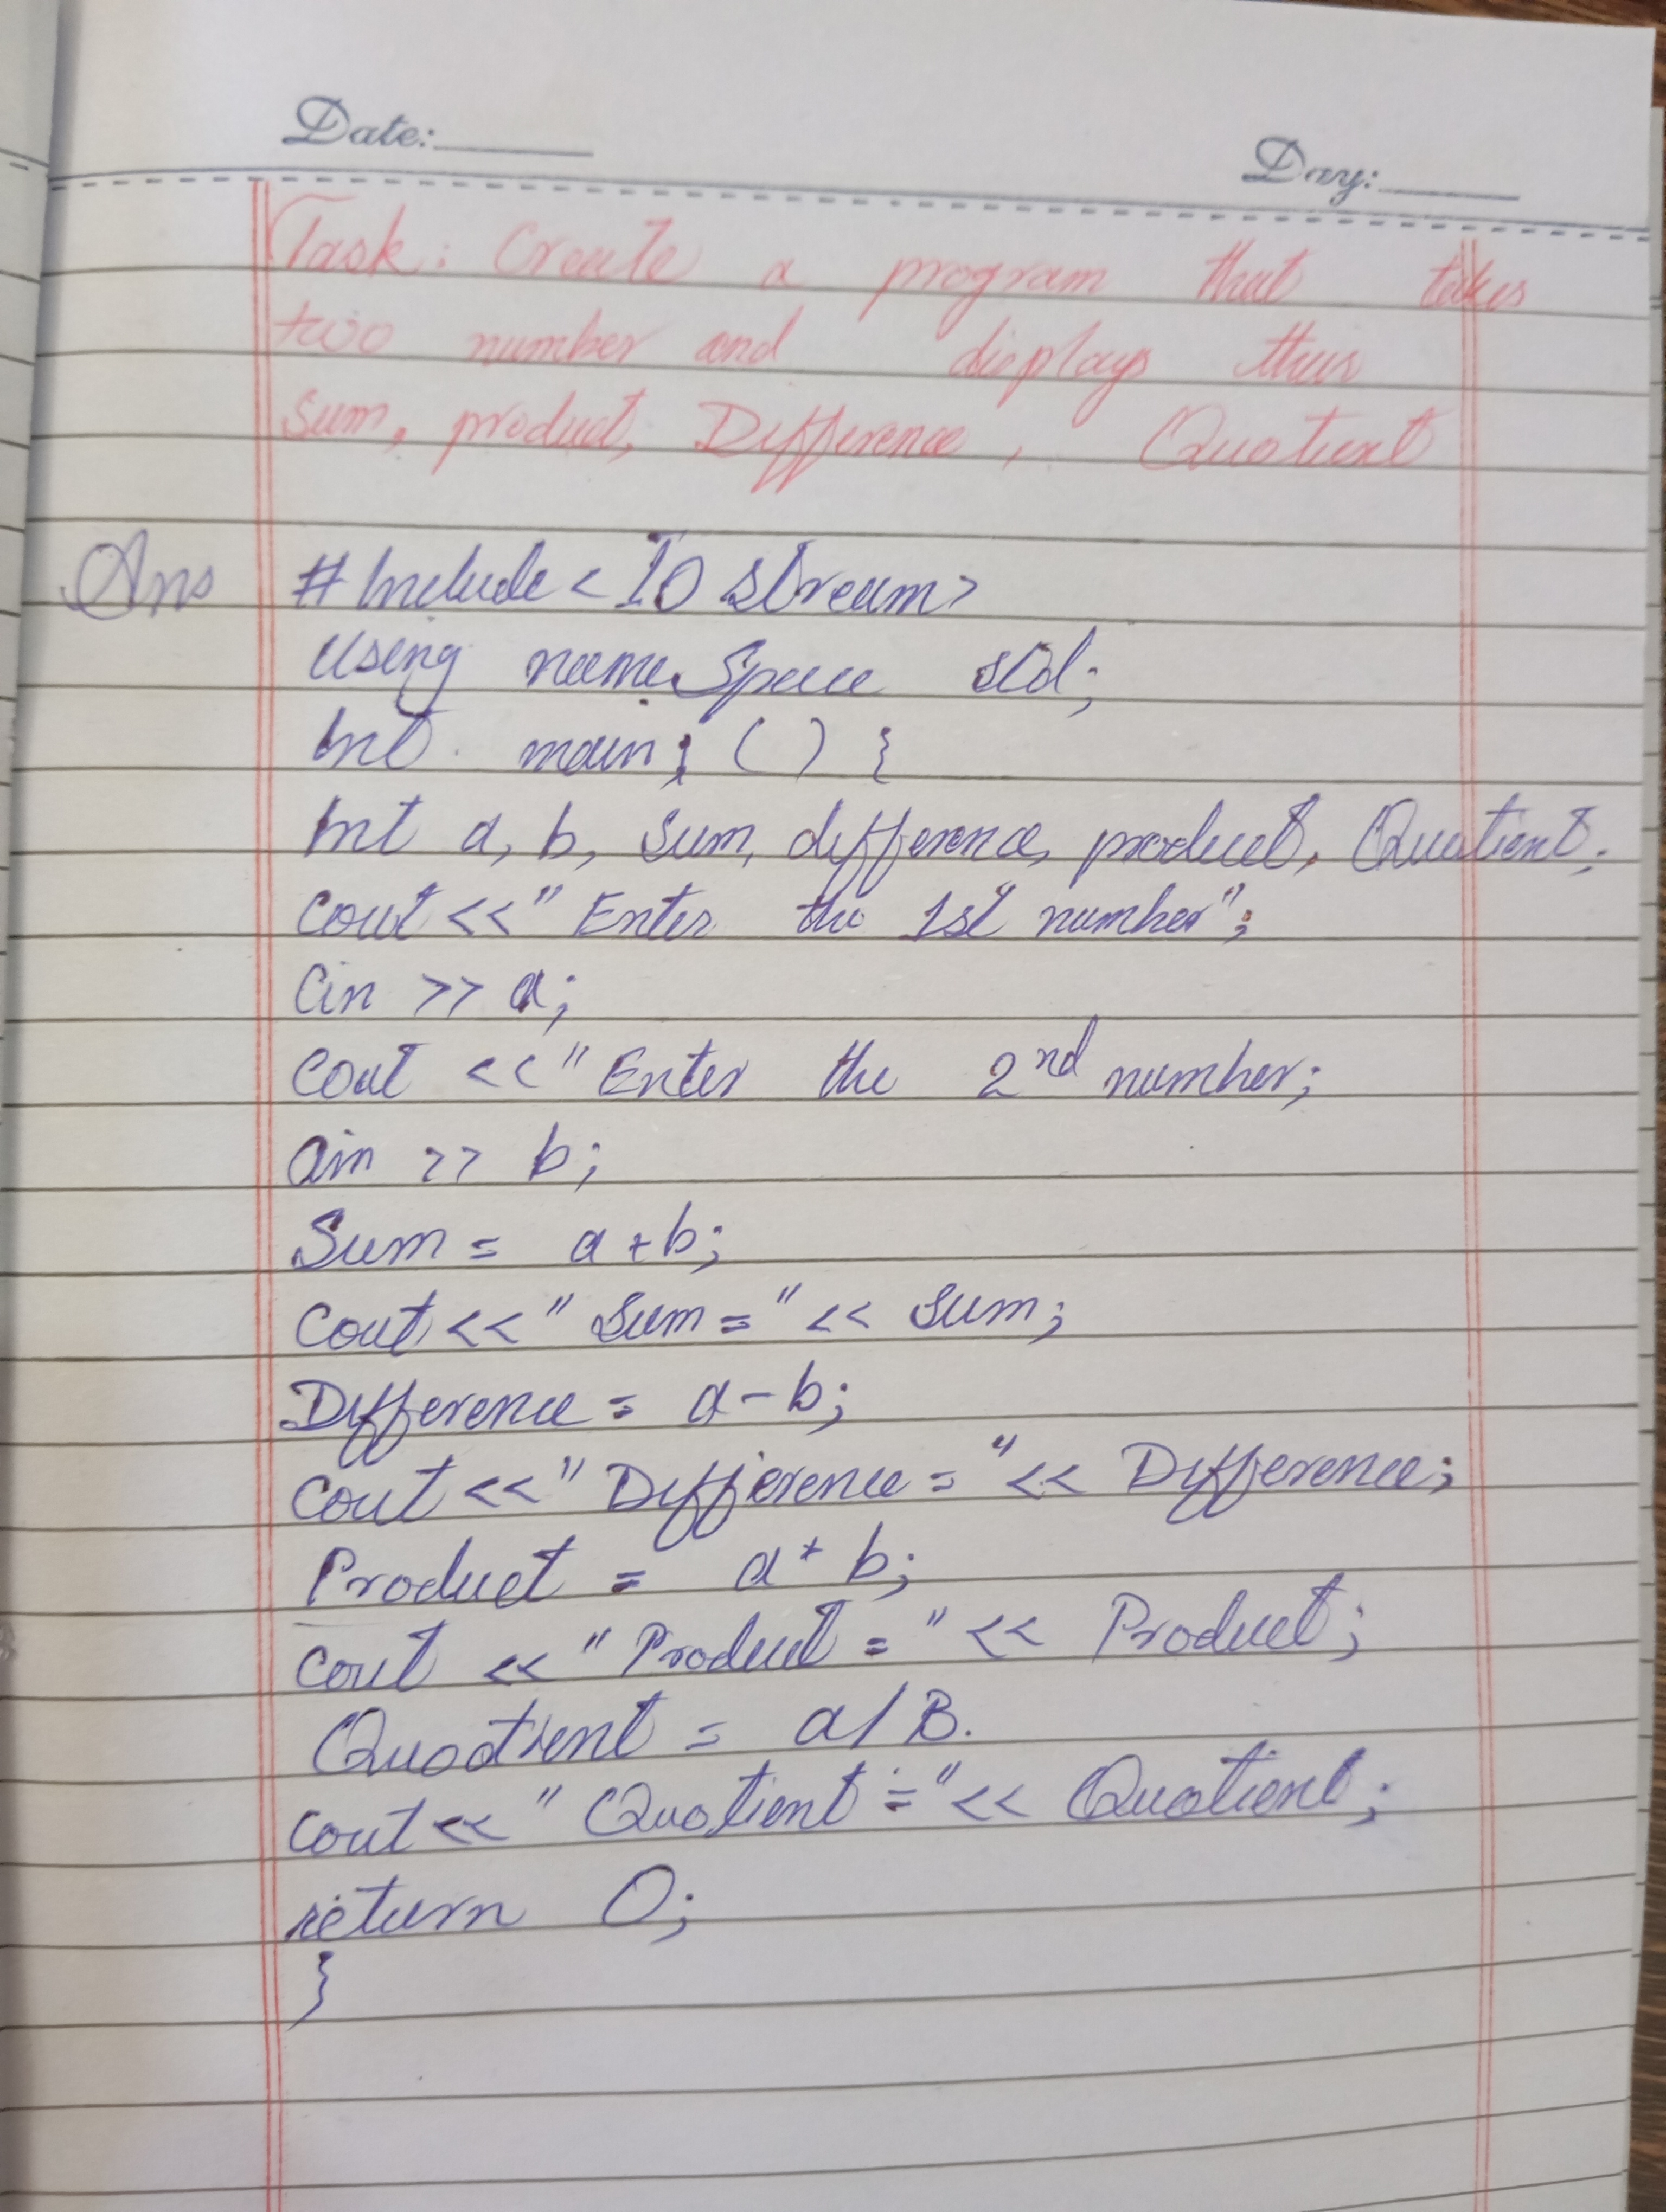 Date:
Day:
Task: Create a program that takes
two number and displays their
Sum, product, Difference, Quotient
Ans
#Include < IO stream>
Using name Space std;
Int main; () {
Int a, b, sum, difference, product, Quotient;
Cout <<" Enter the 1st number";
Cin >> a;
Cout <<" Enter the 2nd number;
Cin >> b;
Sum = a+b;
Cout <<" Sum = " << Sum;
Difference = a-b;
Cout <<" Difference = " << Difference;
Product = a * b;
Cout << " Product = " << Product;
Quotient = a/B.
Cout << " Quotient = " << Quotient;
return 0;
}